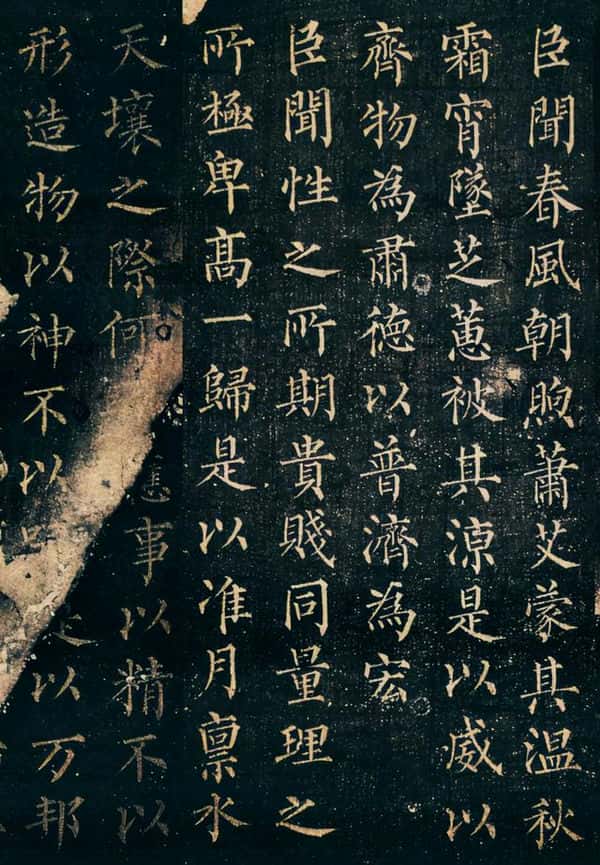 臣聞春風朝煦蕭艾蒙其温秋
霜宵墜芝蕙被其凉是以威以
齊物為肅徳以普濟為宏
臣聞性之所期貴賤同量理之
所極卑髙一歸是以准月禀水
天壤之際何應事以精不以
形造物以神不以是以万邦